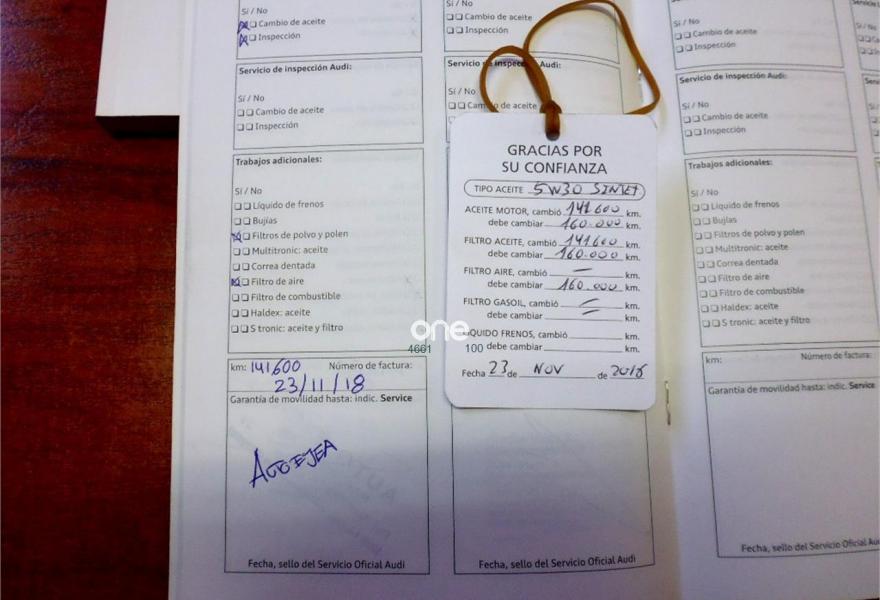 Sí / No
Cambio de aceite
Inspección
Servicio de inspección Audi:
Sí / No
Cambio de aceite
Inspección
Trabajos adicionales:
Sí / No
Líquido de frenos
Bujías
Filtros de polvo y polen
Multitronic: aceite
Correa dentada
Filtro de aire
Filtro de combustible
Haldex: aceite
S tronic: aceite y filtro
km: 141600 Número de factura:
23/11/18
Garantía de movilidad hasta: indic. Service
Fecha, sello del Servicio Oficial Audi
Sí / No
Cambio de aceite
Inspección
Servicio de inspección Audi:
Sí / No
Cambio de aceite
GRACIAS POR
SU CONFIANZA
TIPO ACEITE 5W30 SINTET
ACEITE MOTOR, cambió 141600 km.
debe cambiar 160.000 km.
FILTRO ACEITE, cambió 141600 km.
debe cambiar 160.000 km.
FILTRO AIRE, cambió — km.
debe cambiar 160.000 km.
FILTRO GASOIL, cambió — km.
debe cambiar — km.
LIQUIDO FRENOS, cambió km.
debe cambiar km.
Fecha 23 de NOV de 2018
one
4661 100
Fecha, sello del Servicio Oficial Audi
Sí / No
Cambio de aceite
Inspección
Servicio de inspección Audi:
Sí / No
Cambio de aceite
Inspección
Trabajos adicionales:
Sí / No
Líquido de frenos
Bujías
Filtros de polvo y polen
Multitronic: aceite
Correa dentada
Filtro de aire
Filtro de combustible
Haldex: aceite
S tronic: aceite y filtro
km: Número de factura:
Garantía de movilidad hasta: indic. Service
Fecha, sello del Servicio Oficial Audi